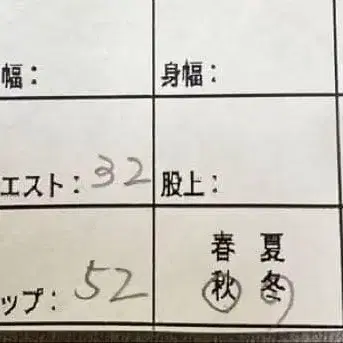 幅: 身幅:
エスト: 32 股上:
春 夏
ップ: 52 秋 冬